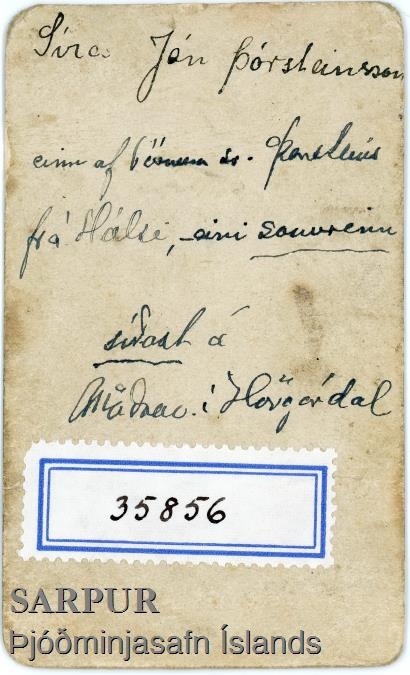 Síra Jón Þórsteinsson
einn af börnum sr. Þorsteins
frá Hálsi, eini sonurinn
síðast á
Möðruv. í Hörgárdal
35856
SARPUR
Þjóðminjasafn Íslands